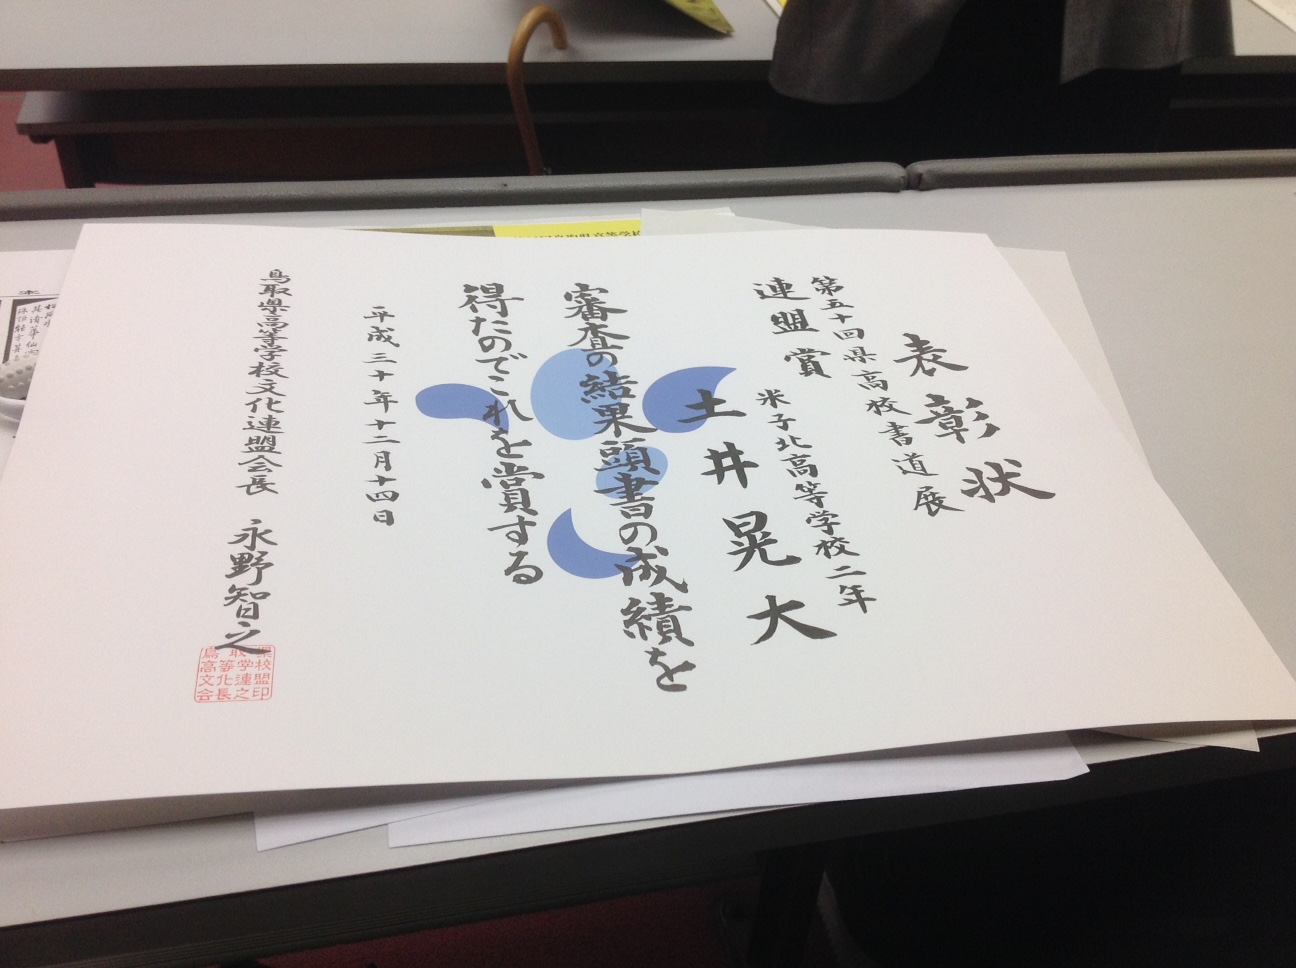 表彰状
第五十回県高校書道展
連盟賞
米子北高等学校二年
土井晃大
審査の結果頭書の成績を
得たのでこれを賞する
平成三十年十二月十四日
鳥取県高等学校文化連盟会長 永野智之
県校盟印
取学連之
等化長
鳥高文会